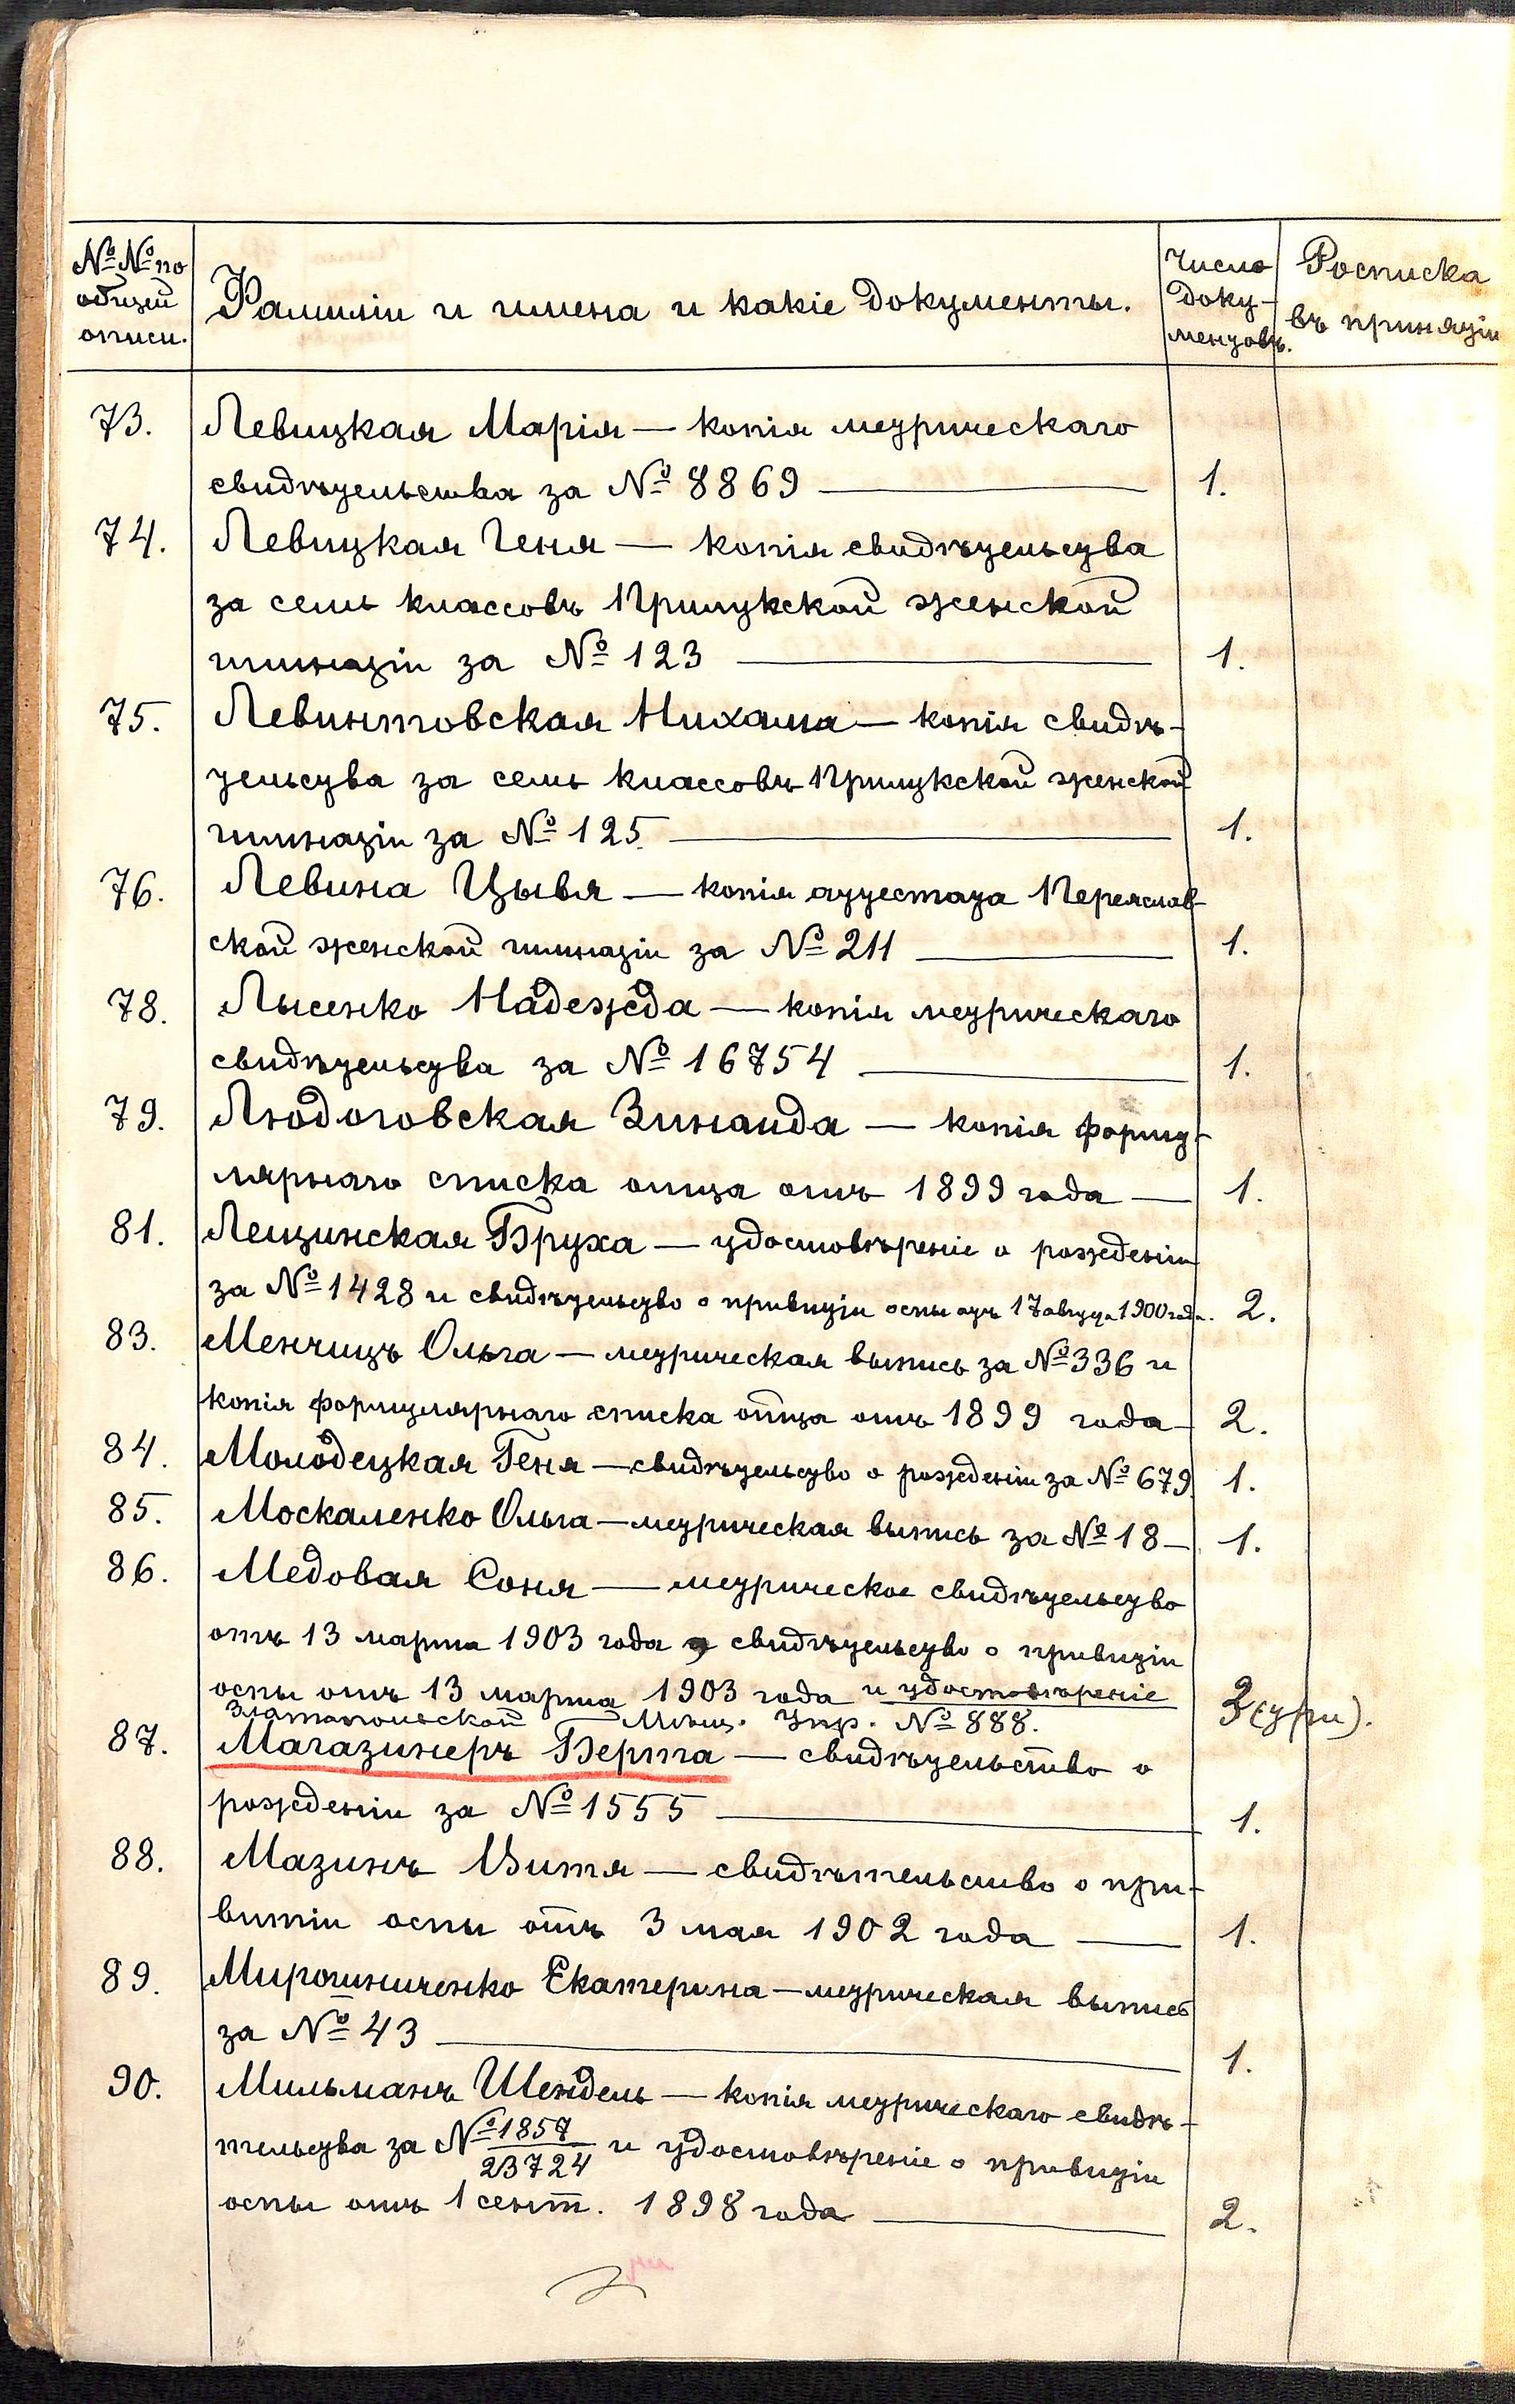 №№ по
общей
описи.
Фамиліи и имена и какіе документы.
Число
доку-
ментовъ.
Росписка
въ принятіи
73. Левицкая Марія — копія метрическаго
свидѣтельства за № 8869 — 1.
74. Левицкая Геня — копія свидѣтельства
за семь классовъ Прилукской женской
гимназіи за № 123 — 1.
75. Левинтовская Нихама — копія свидѣ-
тельства за семь классовъ Прилукской женской
гимназіи за № 125 — 1.
76. Левина Цывья — копія аттестата Переяслав-
ской женской гимназіи за № 211 — 1.
78. Лысенко Надежда — копія метрическаго
свидѣтельства за № 16754 — 1.
79. Людоговская Зинаида — копія форму-
лярнаго списка отца отъ 1899 года — 1.
81. Лещинская Бруха — удостовѣреніе о рожденіи
за № 1428 и свидѣтельство о привитіи оспы отъ 17 августа 1900 года. 2.
83. Менчицъ Ольга — метрическая выпись за № 336 и
копія формулярнаго списка отца отъ 1899 года — 2.
84. Молодецкая Геня — свидѣтельство о рожденіи за № 679 1.
85. Москаленко Ольга — метрическая выпись за № 18 — 1.
86. Медовая Соня — метрическое свидѣтельство
отъ 13 марта 1903 года, свидѣтельство о привитіи
оспы отъ 13 марта 1903 года и удостовѣреніе 3 (три).
Златопольской Мѣщ. Упр. № 888.
87. Магазинеръ Берта — свидѣтельство о
рожденіи за № 1555 — 1.
88. Мазинъ Витя — свидѣтельство о при-
витіи оспы отъ 3 мая 1902 года — 1.
89. Мирошниченко Екатерина — метрическая выпись
за № 43 — 1.
90. Мильманъ Шендель — копія метрическаго свидѣ-
тельства за № 1857/23724 и удостовѣреніе о привитіи
оспы отъ 1 сент. 1898 года — 2.